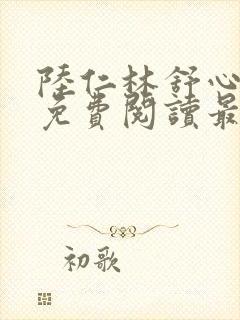 陸仁林舒心
免費閱讀最
初歌